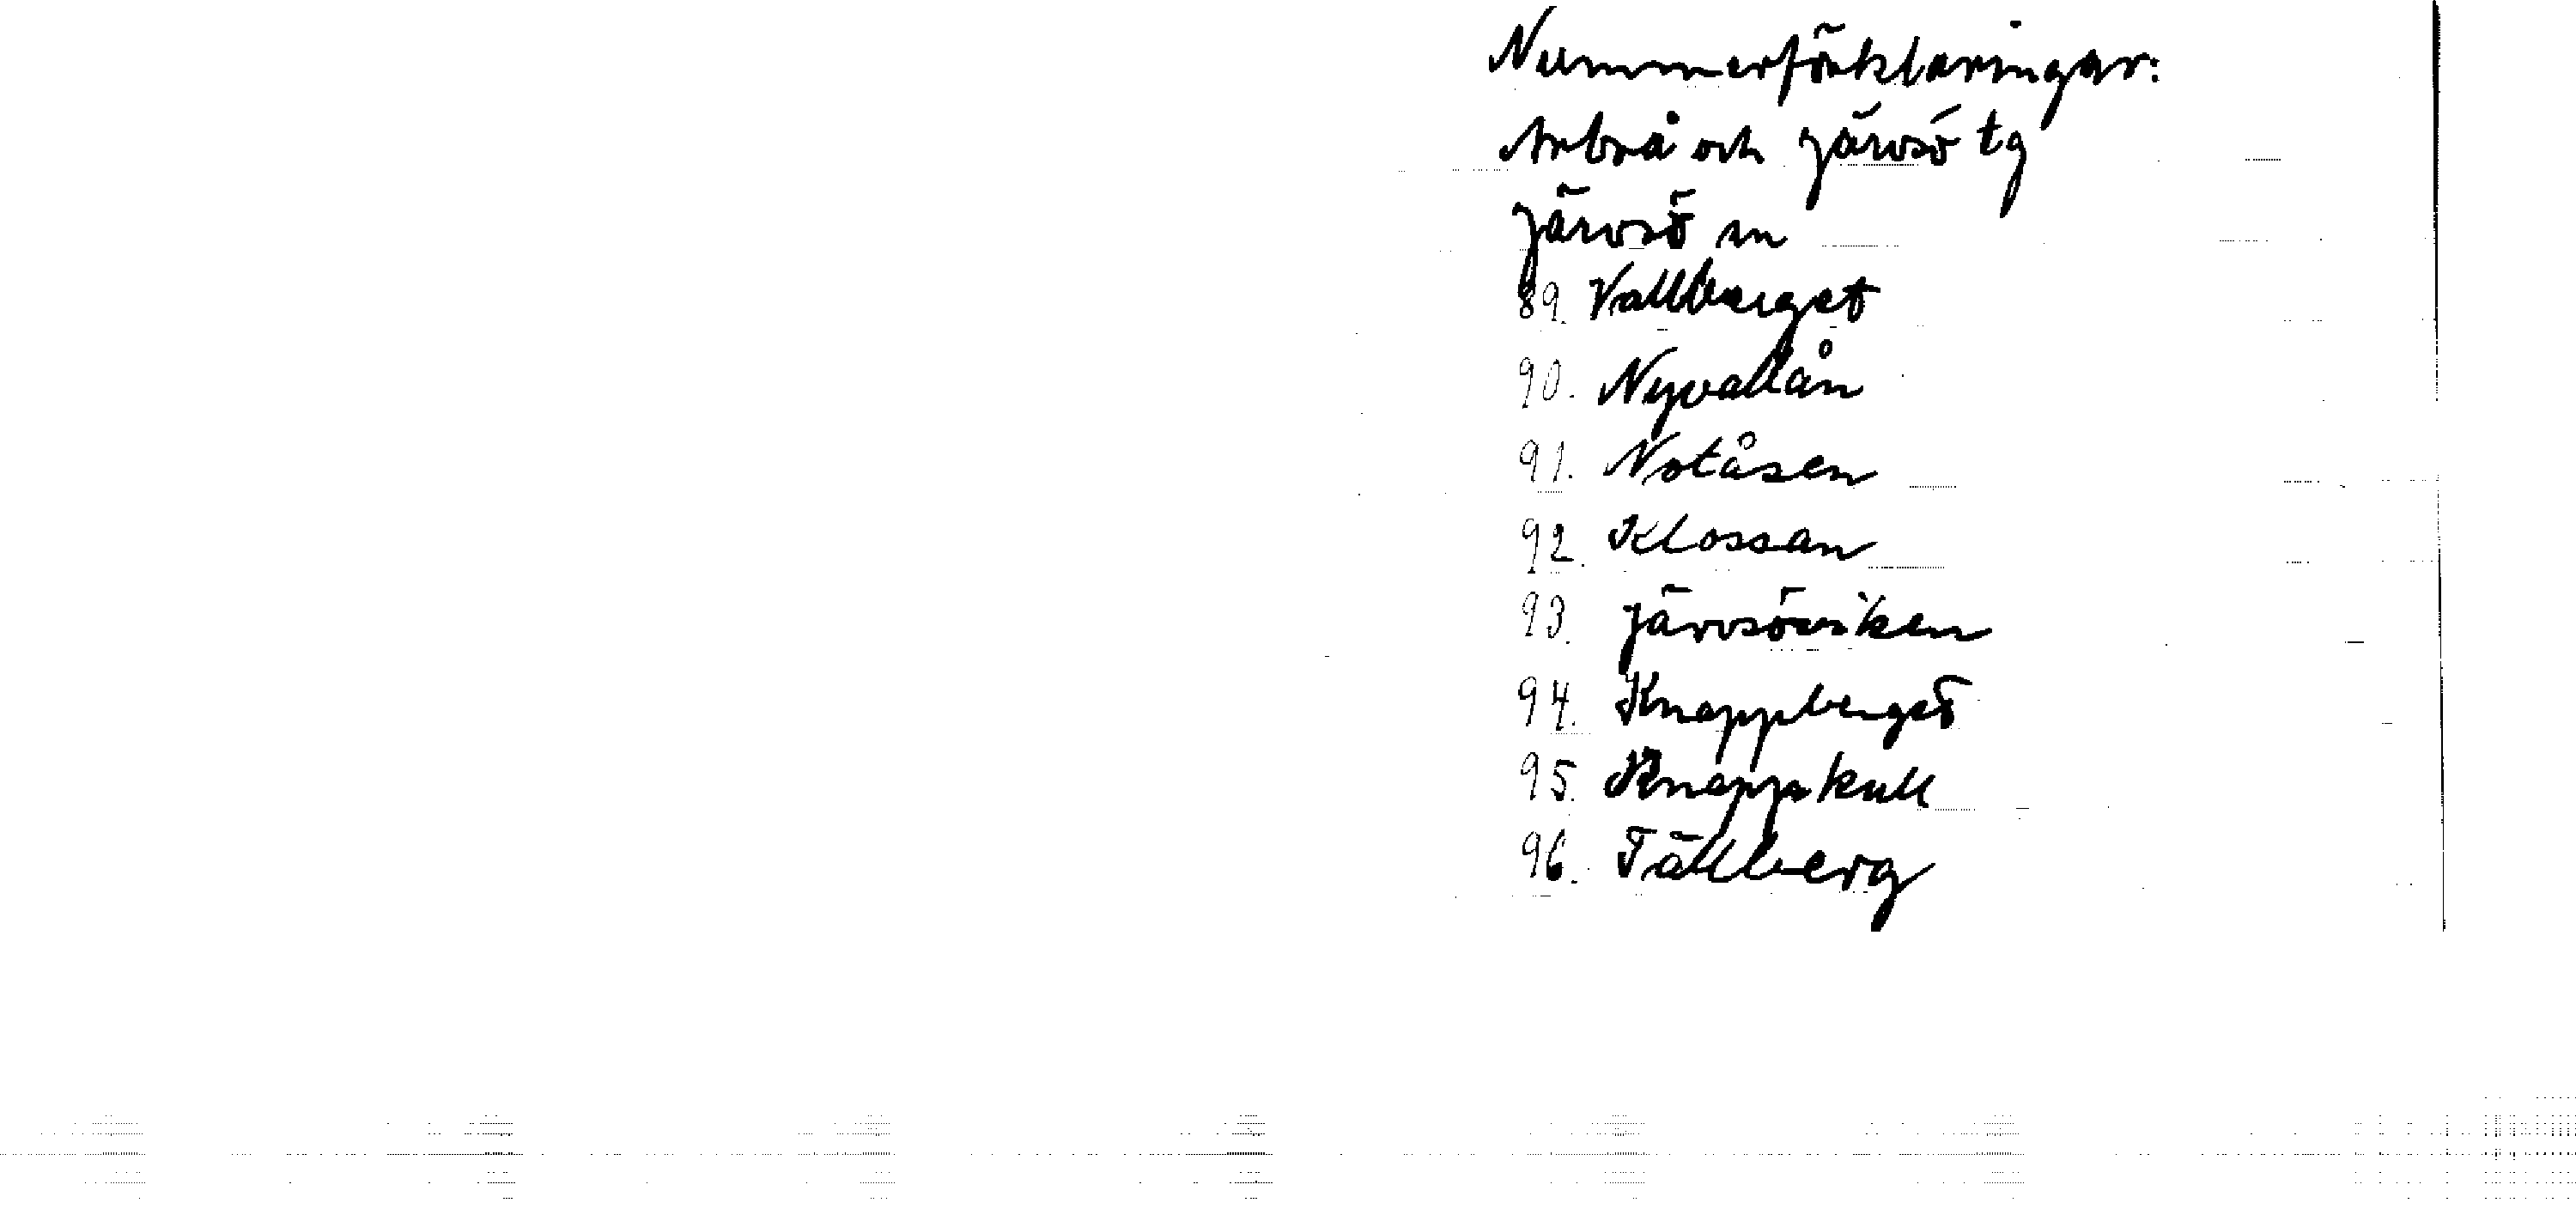 Nummerförklaringar:
Arbrå och Järvsö tg
Järvsö sn
89. Vallberget
90. Nyvallån
91. Notåsen
92. Klossan
93. Järvsöviken
94. Knappberget
95. Knappkull
96. Tällberg